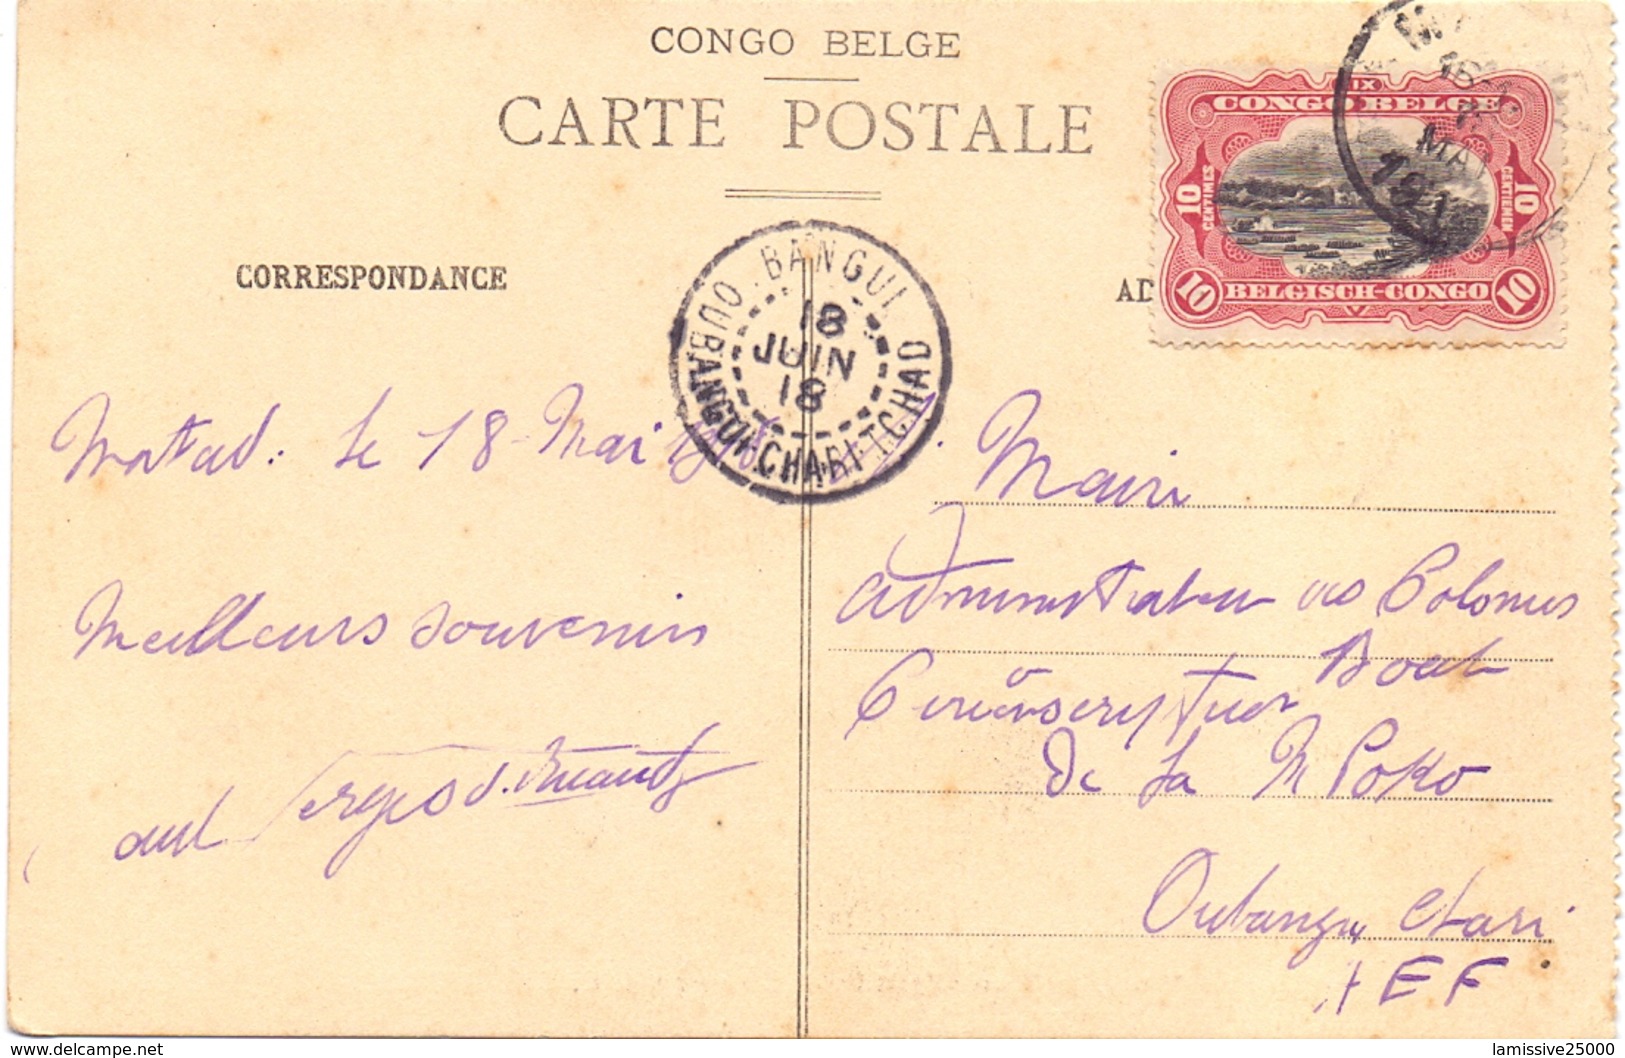 CONGO BELGE
CARTE POSTALE
CORRESPONDANCE
AD
DIX
CONGO BELGE
10 CENTIMES
10 CENTIEMEN
10 BELGISCH-CONGO 10
MAI
BANGUI
18
JUIN
18
OUBANGUI CHARI TCHAD
Matadi. le 18 Mai
Meilleurs souvenirs
Mairi
Administrateur des Colonies
Circonscription
De la M'Poko
Oubangui Chari
AEF
lamissive25000